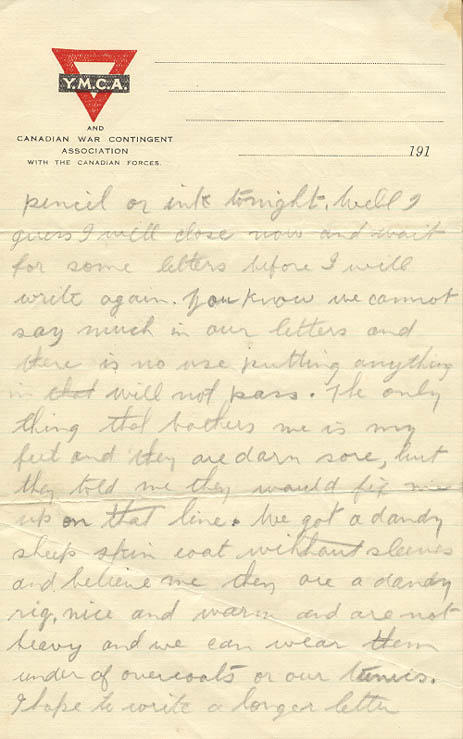 Y.M.C.A.
AND
CANADIAN WAR CONTINGENT
ASSOCIATION
WITH THE CANADIAN FORCES.
191
pencil or ink tonight. Well I
guess I will close now and wait
for some letters before I will
write again. You know we cannot
say much in our letters and
there is no use putting anything
in that will not pass. The only
thing that bothers me is my
feet and they are darn sore, but
they told me they would fix me
up on that line. We got a dandy
sheep skin coat without sleeves
and believe me they are a dandy
rig, nice and warm and are not
heavy and we can wear them
under of overcoats or our tunics.
I hope to write a longer letter